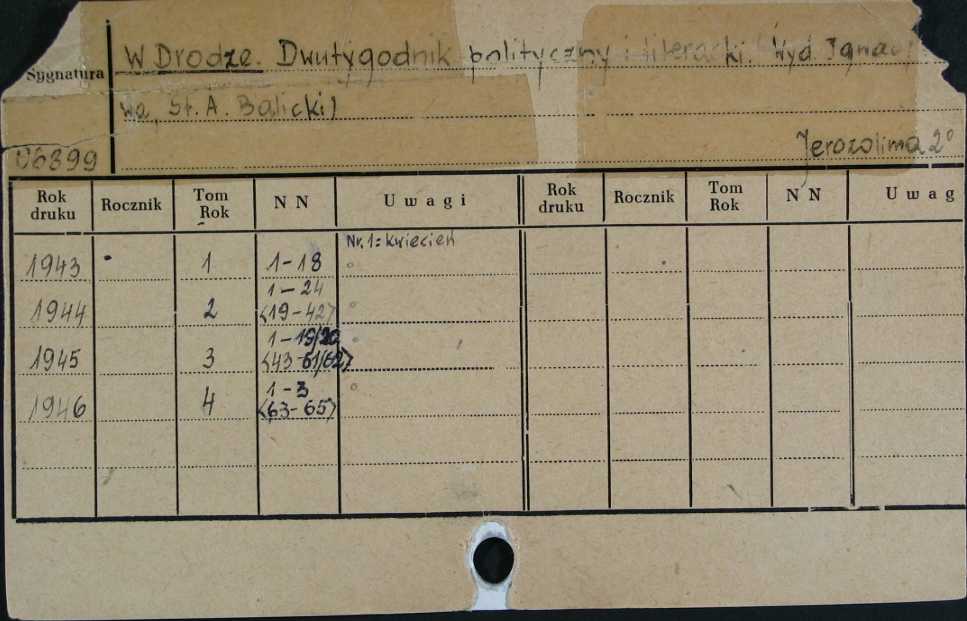 W Drodze. Dwutygodnik polityczny i literacki. (Wyd. Ignac
Sygnatura
wa, St. A. Balicki)
06899
Jerozolima 2°
Rok druku Rocznik Tom Rok N N Uwagi Rok druku Rocznik Tom Rok N N Uwag
Nr. 1: kwiecień
1943 1 1-18
1-24
1944 2 <19-42>
1-19/20
1945 3 <43-61/62>
1-3
1946 4 <63-65>